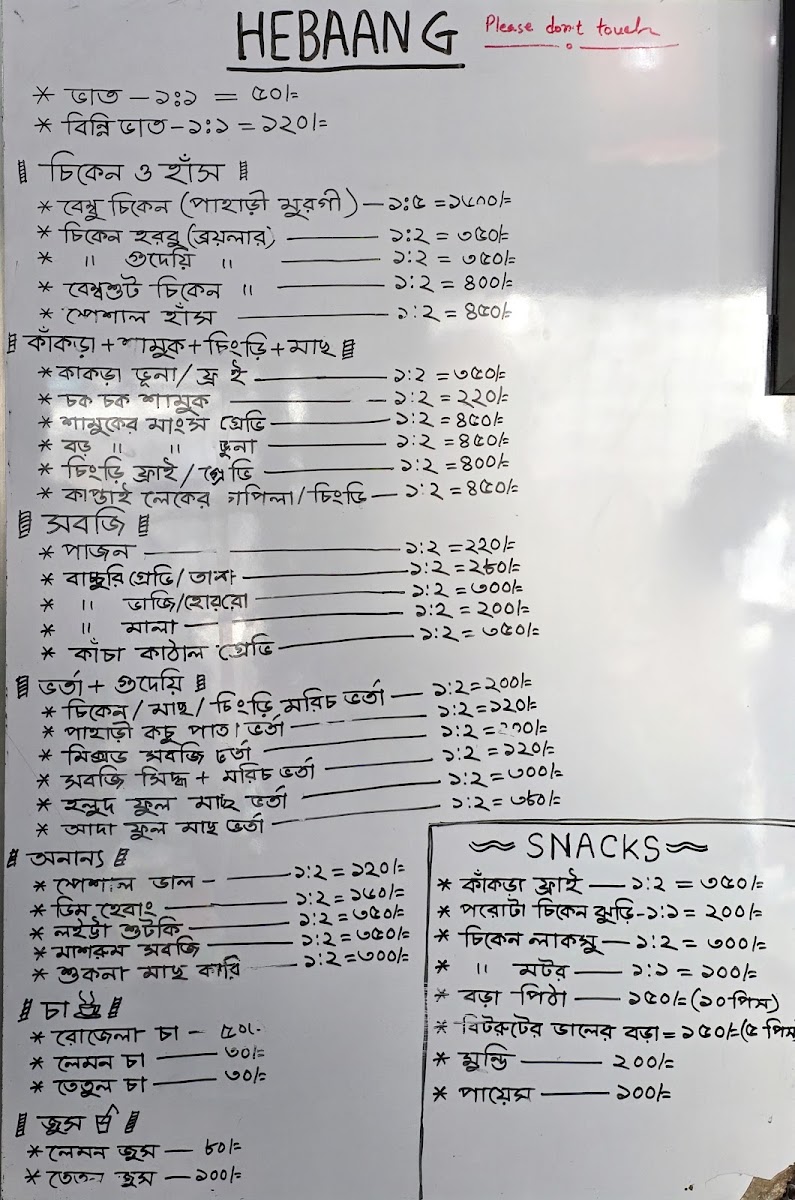 HEBAANG
Please don't touch
* ভাত — ১ঃ১ = ৫০/=
* বিন্নি ভাত - ১ঃ১ = ১২০/=
চিকেন ও হাঁস
* বেম্বু চিকেন (পাহাড়ী মুরগী) — ১ঃ৫ =
* চিকেন হরবু (ব্রয়লার) — ১ঃ২ = ৩৫০/=
* " গুদেয়ি " — ১:২ = ৩৫০/=
* বেম্বশুট চিকেন " — ১:২ = ৪০০/=
* স্পেশাল হাঁস — ১:২ = ৪৫০/=
কাঁকড়া + শামুক + চিংড়ি + মাছ
* কাকড়া ভূনা / ফ্রাই — ১:২ = ৩৫০/=
* চক চক শামুক — ১:২ = ২২০/=
* শামুকের মাংস গ্রেভি — ১:২ = ৪৫০/=
* বড় " " ভূনা — ১:২ = ৪৫০/=
* চিংড়ি ফ্রাই / গ্রেভি — ১:২ = ৪০০/=
* কাপ্তাই লেকের চাপিলা / চিংড়ি — ১:২ = ৪৫০/=
সবজি
* পাজন — ১:২ = ২২০/=
* বাচ্চুরি গ্রেভি / — ১:২ = ২৮০/=
* " ভাজি / হোরবো — ১:২ = ৩০০/=
* " মালা — ১:২ = ২০০/=
* কাঁচা কাঠাল গ্রেভি — ১:২ = ৩৫০/=
ভর্তা + গুদেয়ি
* চিকেন / মাছ / চিংড়ি মরিচ ভর্তা — ১:২ = ২০০/=
* পাহাড়ী কচু পাতা ভর্তা — ১:২ = ১২০/=
* মিক্সড সবজি ভর্তা — ১:২ =
* সবজি সিদ্ধ + মরিচ ভর্তা — ১:২ = ১২০/=
* হলুদ ফুল মাছ ভর্তা — ১:২ = ৩০০/=
* আদা ফুল মাছ ভর্তা — ১:২ = ৩৮০/=
অনান্য
* স্পেশাল ডাল - — ১:২ = ১২০/=
* ডিম হেবাং — ১:২ = ১৬০/=
* লইট্টা শুটকি — ১:২ = ৩৫০/=
* মাশরুম সবজি — ১:২ = ৩৫০/=
* শুকনা মাছ কারি — ১:২ = ৩০০/=
চা
* রোজেলা চা — ৫০/-
* লেমন চা — ৩০/=
* তেতুল চা — ৩০/=
জুস
* লেমন জুস — ৮০/=
* জুস — ১০০/=
SNACKS
* কাঁকড়া ফ্রাই — ১:২ = ৩৫০/=
* পরোটা চিকেন ঝুড়ি - ১:১ = ২০০/=
* চিকেন লাকসু — ১:২ = ৩০০/=
* " মটর — ১:১ = ১০০/=
* বড়া পিঠা — ১৫০/= (১০ পিস)
* বিটরুটের ডালের বড়া = ১৫০/= (৫ পিস
* মুন্ডি — ২০০/=
* পায়েস — ১০০/=